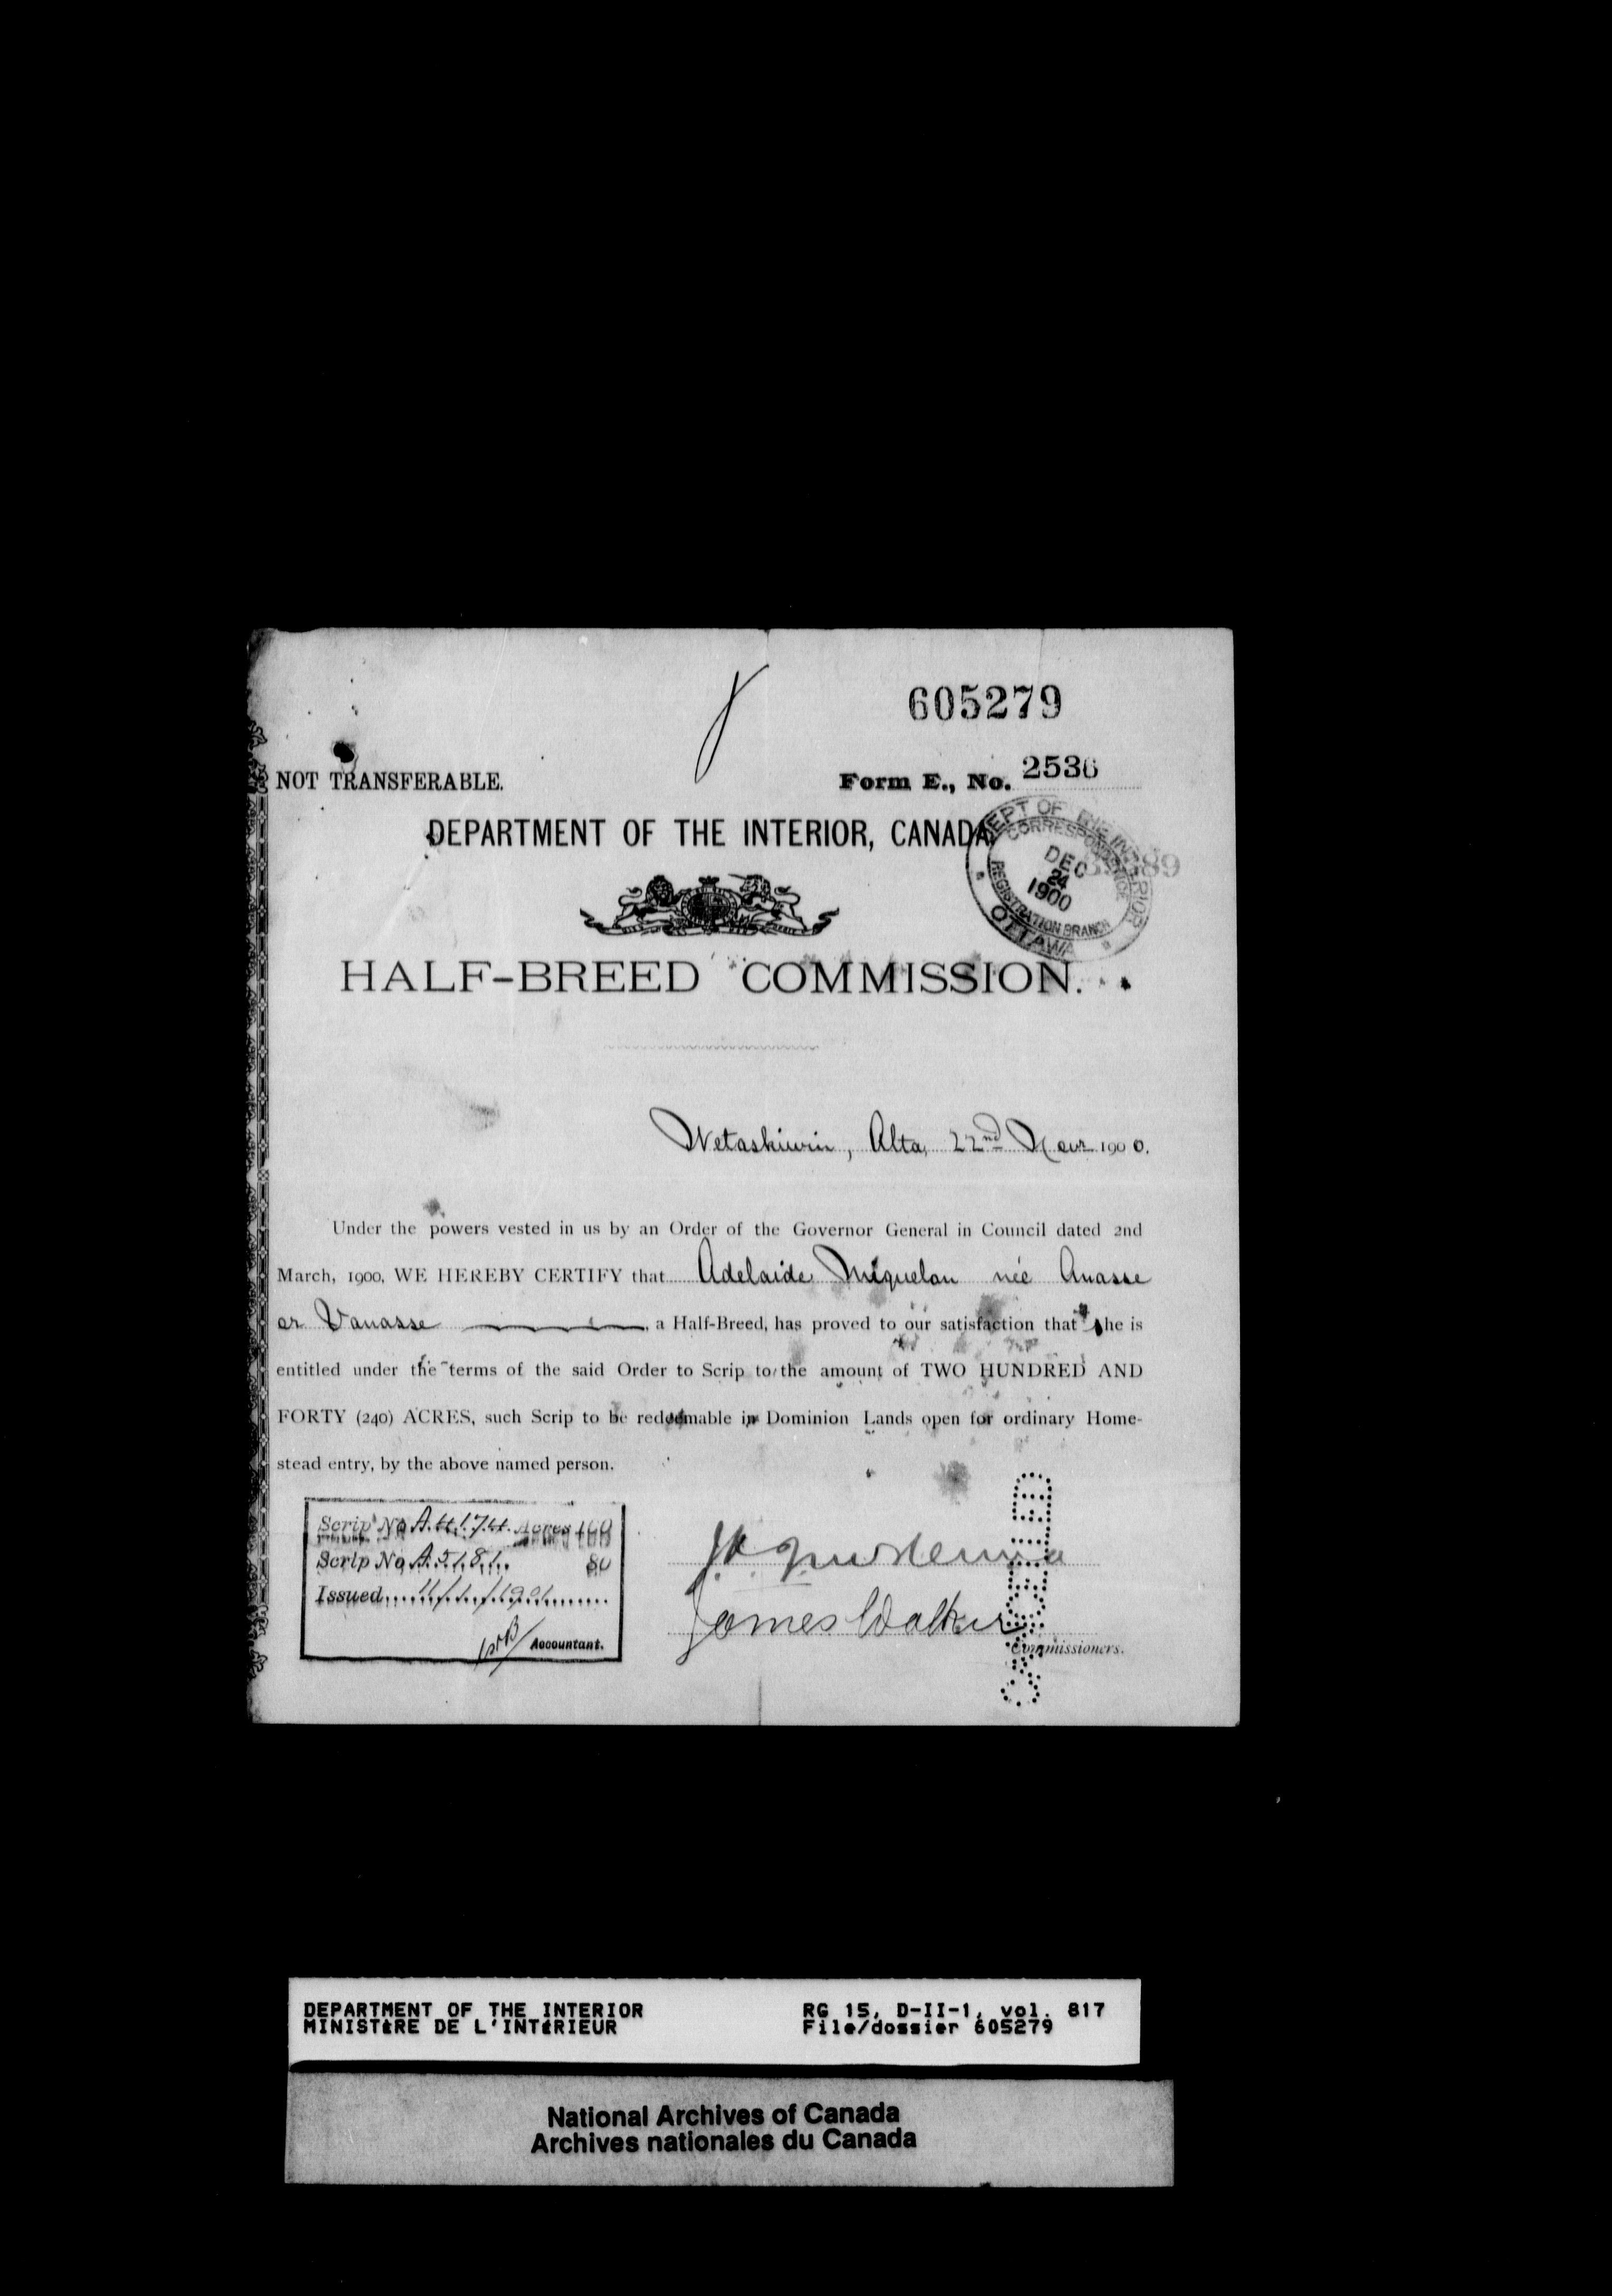 605279
NOT TRANSFERABLE.
Form E., No. 2536
DEPARTMENT OF THE INTERIOR, CANADA
DEPT OF THE INTERIOR
CORRESPONDENCE
DEC
24
1900
REGISTRATION BRANCH
OTTAWA
HALF-BREED COMMISSION.
Wetaskiwin, Alta, 22nd Novr 1900.
Under the powers vested in us by an Order of the Governor General in Council dated 2nd
March, 1900, WE HEREBY CERTIFY that Adelaide Miquelon née Anasse
or Vanasse, a Half-Breed, has proved to our satisfaction that she is
entitled under the terms of the said Order to Scrip to the amount of TWO HUNDRED AND
FORTY (240) ACRES, such Scrip to be redeemable in Dominion Lands open for ordinary Home-
stead entry, by the above named person.
Scrip No A.4174. Acres 160
Scrip No A.5181. 80
Issued 11/1/1901
Accountant.
James Walker
Commissioners.
DEPARTMENT OF THE INTERIOR
MINISTÈRE DE L'INTÉRIEUR
RG 15, D-II-1, vol. 817
File/dossier 605279
National Archives of Canada
Archives nationales du Canada